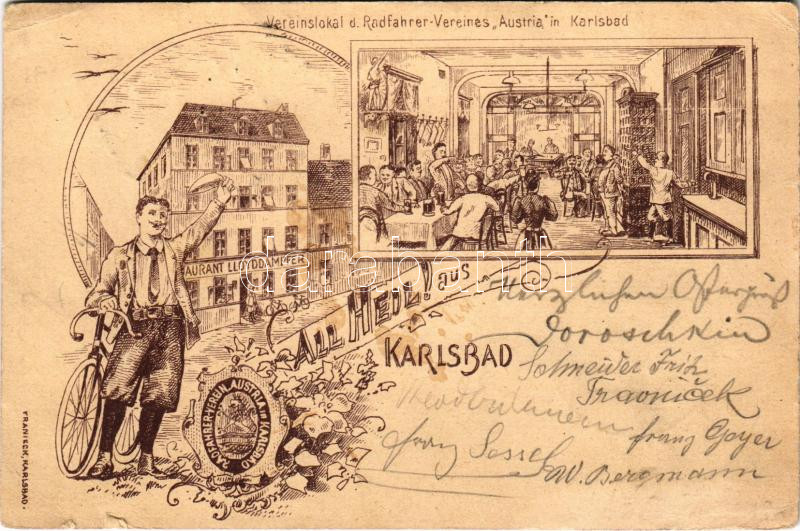 Vereinslokal d. Radfahrer-Vereines „Austria" in Karlsbad
AURANT LLOYDDAMPFER
ALL HEIL! aus
KARLSBAD
RADFAHRER-VEREIN AUSTRIA in KARLSBAD
FRANIECK, KARLSBAD.
darabanth
Herzlichen Ostergruß
Doroschkin
Schneider Fritz
Travniček
franz Geyer
franz
W. Bergmann